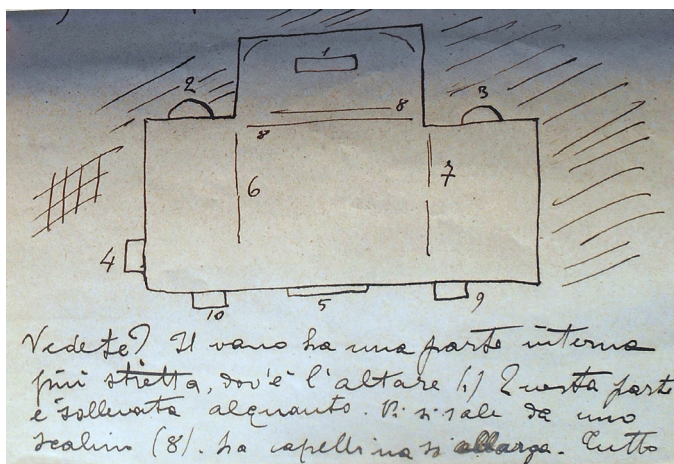 1
2
3
8
8
6
7
4
10
5
9
Vedete? Il vano ha una parte interna
più stretta, dov'è l'altare (1) Questa parte
è sollevata alquanto. Vi si sale da uno
scalino (8). La capellina si allarga. Tutto